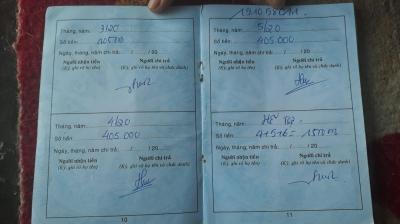 Tháng, năm: 3/20
Số tiền: 405000
Ngày, tháng, năm chi trả: / / 20
Người nhận tiền
(Ký, ghi rõ họ tên)
Người chi trả
(Ký, ghi rõ họ tên và chức danh)
Tháng, năm: 4/20
Số tiền: 405.000
Ngày, tháng, năm chi trả: / / 20
Người nhận tiền
(Ký, ghi rõ họ tên)
Người chi trả
(Ký, ghi rõ họ tên và chức danh)
10
Tháng, năm: 5/20
Số tiền: 405.000
Ngày, tháng, năm chi trả: / / 20
Người nhận tiền
(Ký, ghi rõ họ tên)
Người chi trả
(Ký, ghi rõ họ tên và chức danh)
Tháng, năm:
Số tiền: 4+5+6=
Ngày, tháng, năm chi trả: / / 20
Người nhận tiền
(Ký, ghi rõ họ tên)
Người chi trả
(Ký, ghi rõ họ tên và chức danh)
11